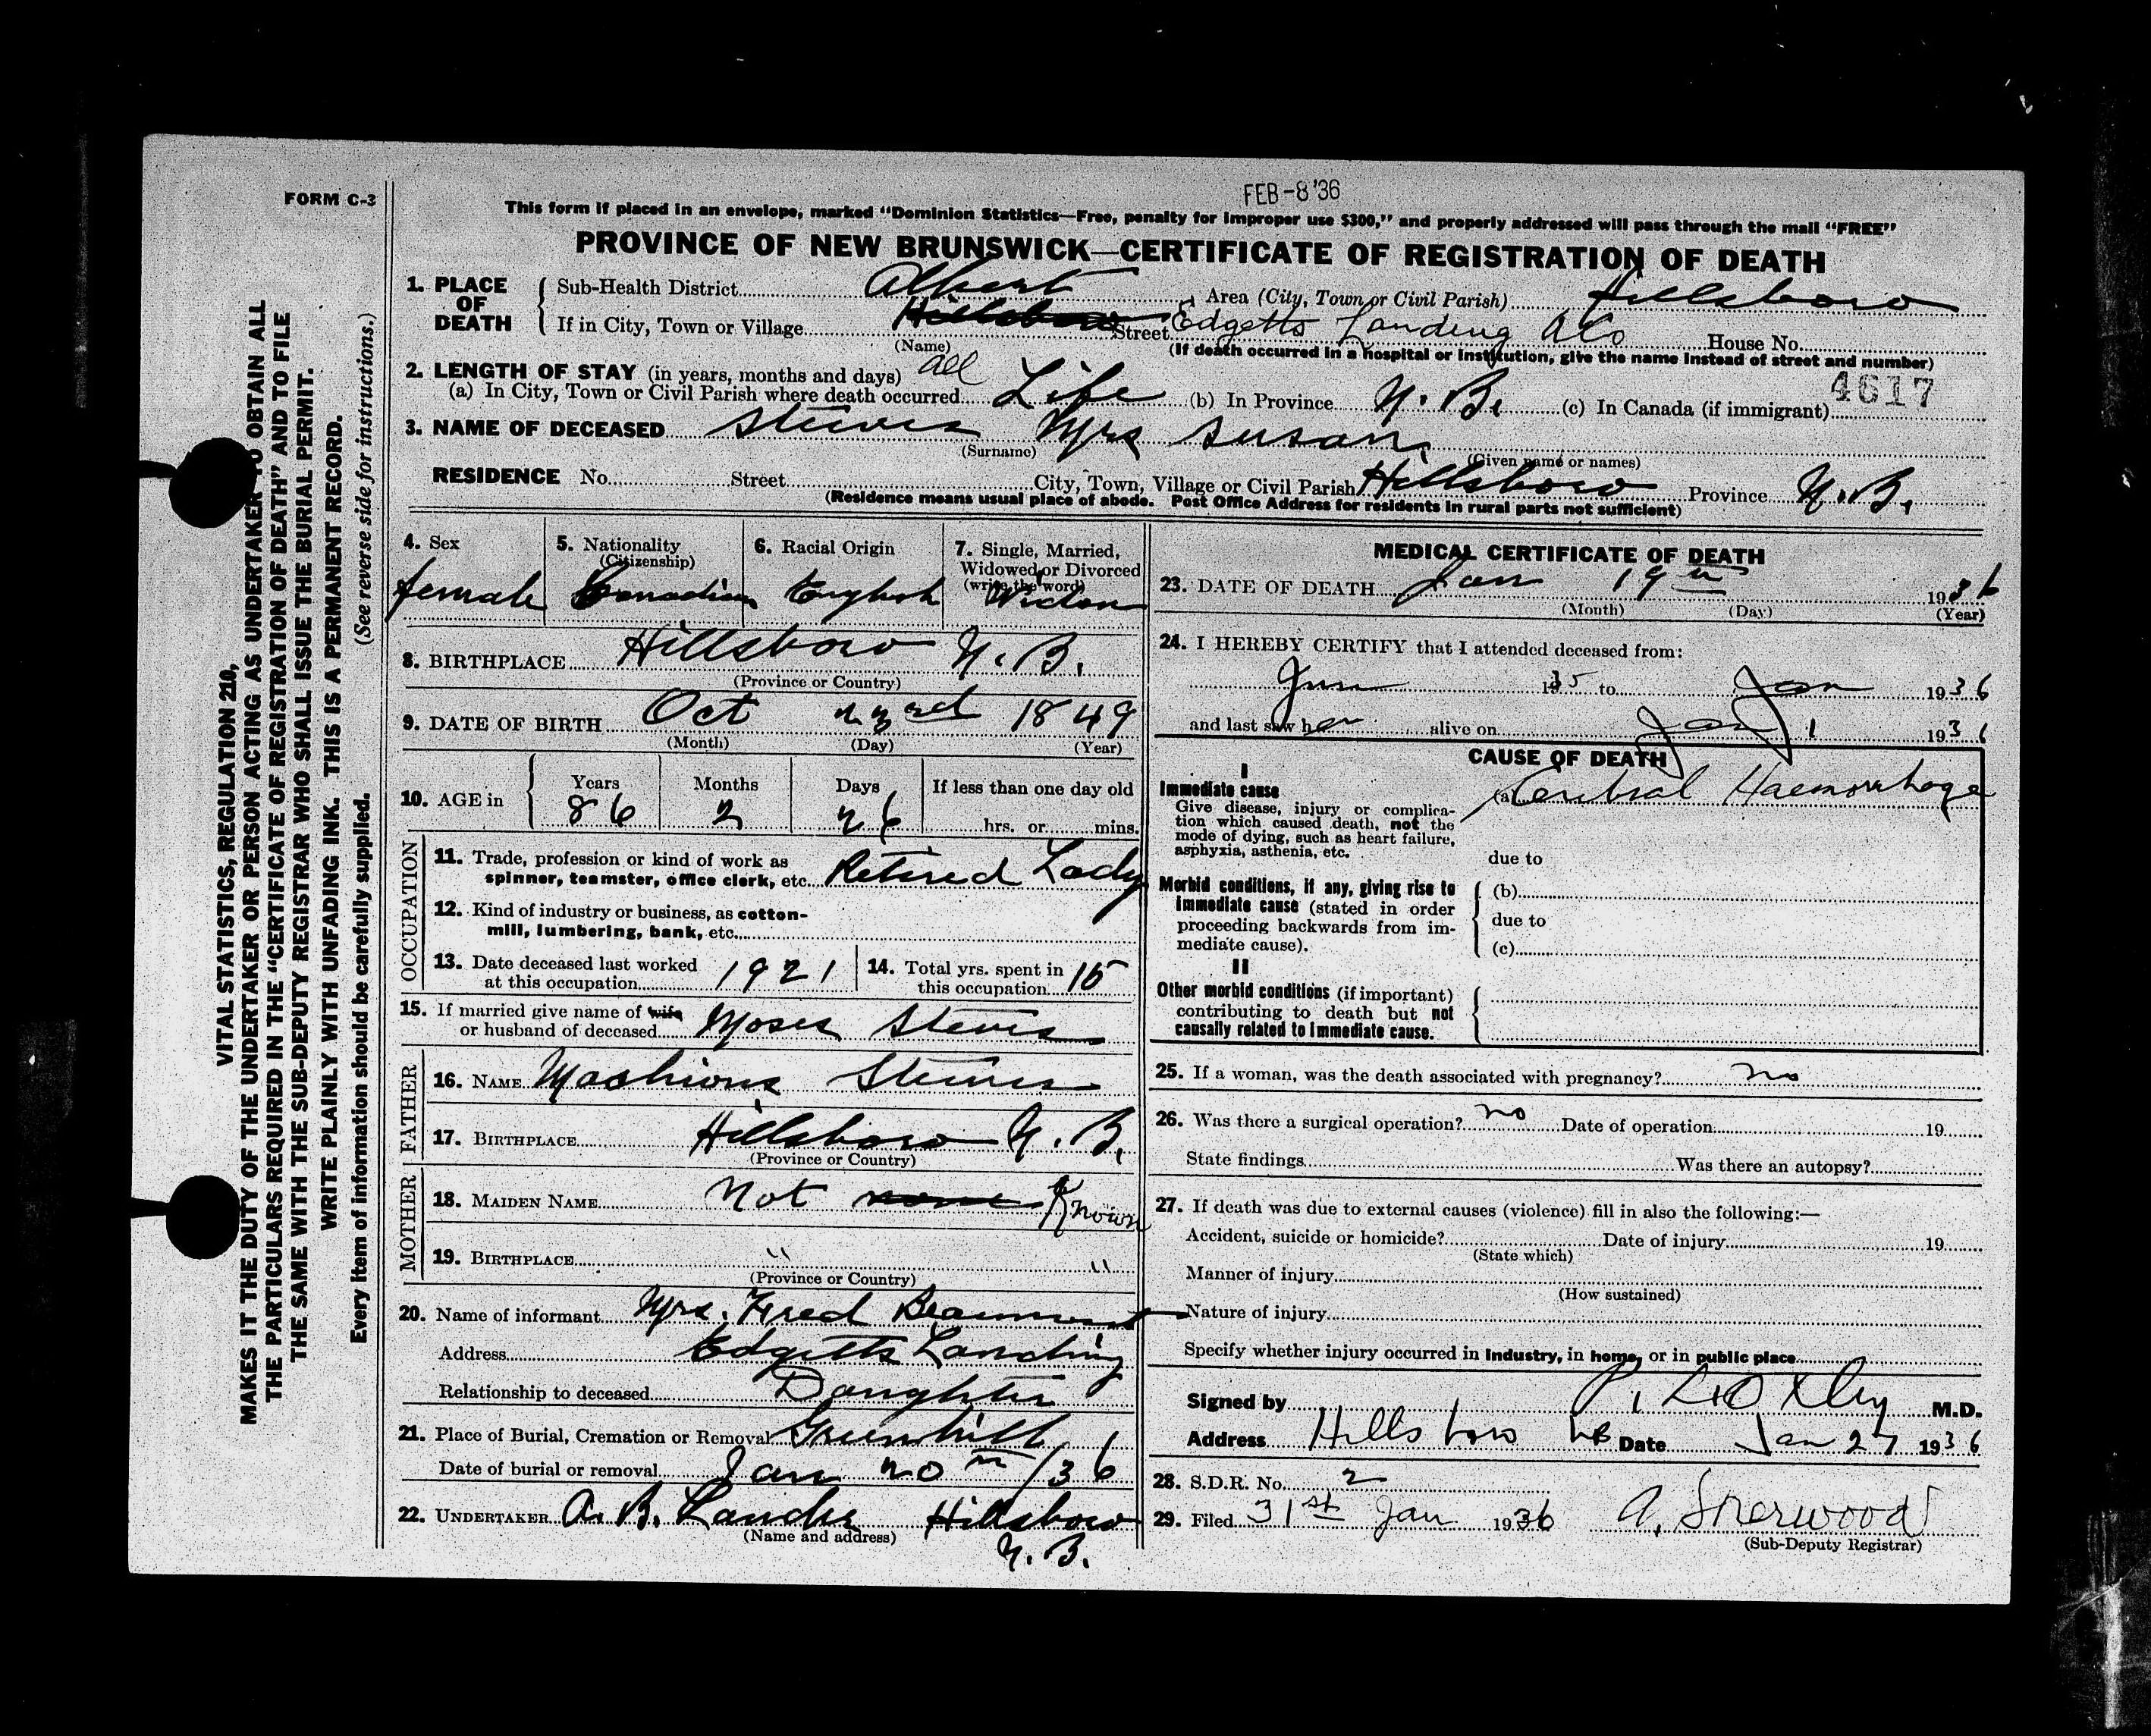 FORM C-3
VITAL STATISTICS, REGULATION 210,
MAKES IT THE DUTY OF THE UNDERTAKER OR PERSON ACTING AS UNDERTAKER TO OBTAIN ALL
THE PARTICULARS REQUIRED IN THE "CERTIFICATE OF REGISTRATION OF DEATH" AND TO FILE
THE SAME WITH THE SUB-DEPUTY REGISTRAR WHO SHALL ISSUE THE BURIAL PERMIT.
WRITE PLAINLY WITH UNFADING INK. THIS IS A PERMANENT RECORD.
Every item of information should be carefully supplied. (See reverse side for instructions.)
FEB -8 '36
This form if placed in an envelope, marked "Dominion Statistics—Free, penalty for improper use $300," and properly addressed will pass through the mail "FREE"
PROVINCE OF NEW BRUNSWICK—CERTIFICATE OF REGISTRATION OF DEATH
1. PLACE OF DEATH Sub-Health District Albert Area (City, Town or Civil Parish) Hillsboro
If in City, Town or Village Hillsboro Street Edgetts Landing A Co House No.
(Name) (If death occurred in a hospital or institution, give the name instead of street and number)
2. LENGTH OF STAY (in years, months and days) all 4617
(a) In City, Town or Civil Parish where death occurred Life (b) In Province N. B. (c) In Canada (if immigrant)
3. NAME OF DECEASED Steeves Mrs Susan
(Surname) (Given name or names)
RESIDENCE No. Street City, Town, Village or Civil Parish Hillsboro Province N. B.
(Residence means usual place of abode. Post Office Address for residents in rural parts not sufficient)
4. Sex 5. Nationality (Citizenship) 6. Racial Origin 7. Single, Married, Widowed or Divorced (write the word)
female Canadian English Widow
8. BIRTHPLACE Hillsboro N. B.
(Province or Country)
9. DATE OF BIRTH Oct 23rd 1849
(Month) (Day) (Year)
10. AGE in Years Months Days If less than one day old
86 2 26 hrs. or mins.
OCCUPATION
11. Trade, profession or kind of work as
spinner, teamster, office clerk, etc. Retired Lady
12. Kind of industry or business, as cotton-
mill, lumbering, bank, etc.
13. Date deceased last worked at this occupation 1921 14. Total yrs. spent in this occupation 15
15. If married give name of wife
or husband of deceased Moses Steves
FATHER
16. NAME Steeves
17. BIRTHPLACE Hillsboro N. B.
(Province or Country)
MOTHER
18. MAIDEN NAME Not none Known
19. BIRTHPLACE " "
(Province or Country)
20. Name of informant Mrs. Fred Beaumont
Address Edgetts Landing
Relationship to deceased Daughter
21. Place of Burial, Cremation or Removal Greenhill
Date of burial or removal Jan 20th /36
22. UNDERTAKER A. B. Lander Hillsboro
(Name and address) N. B.
MEDICAL CERTIFICATE OF DEATH
23. DATE OF DEATH Jan 19th 1936
(Month) (Day) (Year)
24. I HEREBY CERTIFY that I attended deceased from:
Jun 1935 to Jan 1936
and last saw her alive on Jan 1 1936
CAUSE OF DEATH
I
Immediate cause (a) Cerebral Haemorrhage
Give disease, injury or complica-
tion which caused death, not the
mode of dying, such as heart failure,
asphyxia, asthenia, etc. due to
Morbid conditions, if any, giving rise to (b)
immediate cause (stated in order due to
proceeding backwards from im-
mediate cause). (c)
II
Other morbid conditions (if important)
contributing to death but not
causally related to immediate cause.
25. If a woman, was the death associated with pregnancy? no
26. Was there a surgical operation? no Date of operation 19
State findings Was there an autopsy?
27. If death was due to external causes (violence) fill in also the following:—
Accident, suicide or homicide? Date of injury 19
(State which)
Manner of injury
(How sustained)
Nature of injury
Specify whether injury occurred in industry, in home, or in public place
Signed by Oxley M.D.
Address Hillsboro NB Date Jan 27 1936
28. S.D.R. No. 2
29. Filed 31st Jan 1936 A. Sherwood
(Sub-Deputy Registrar)